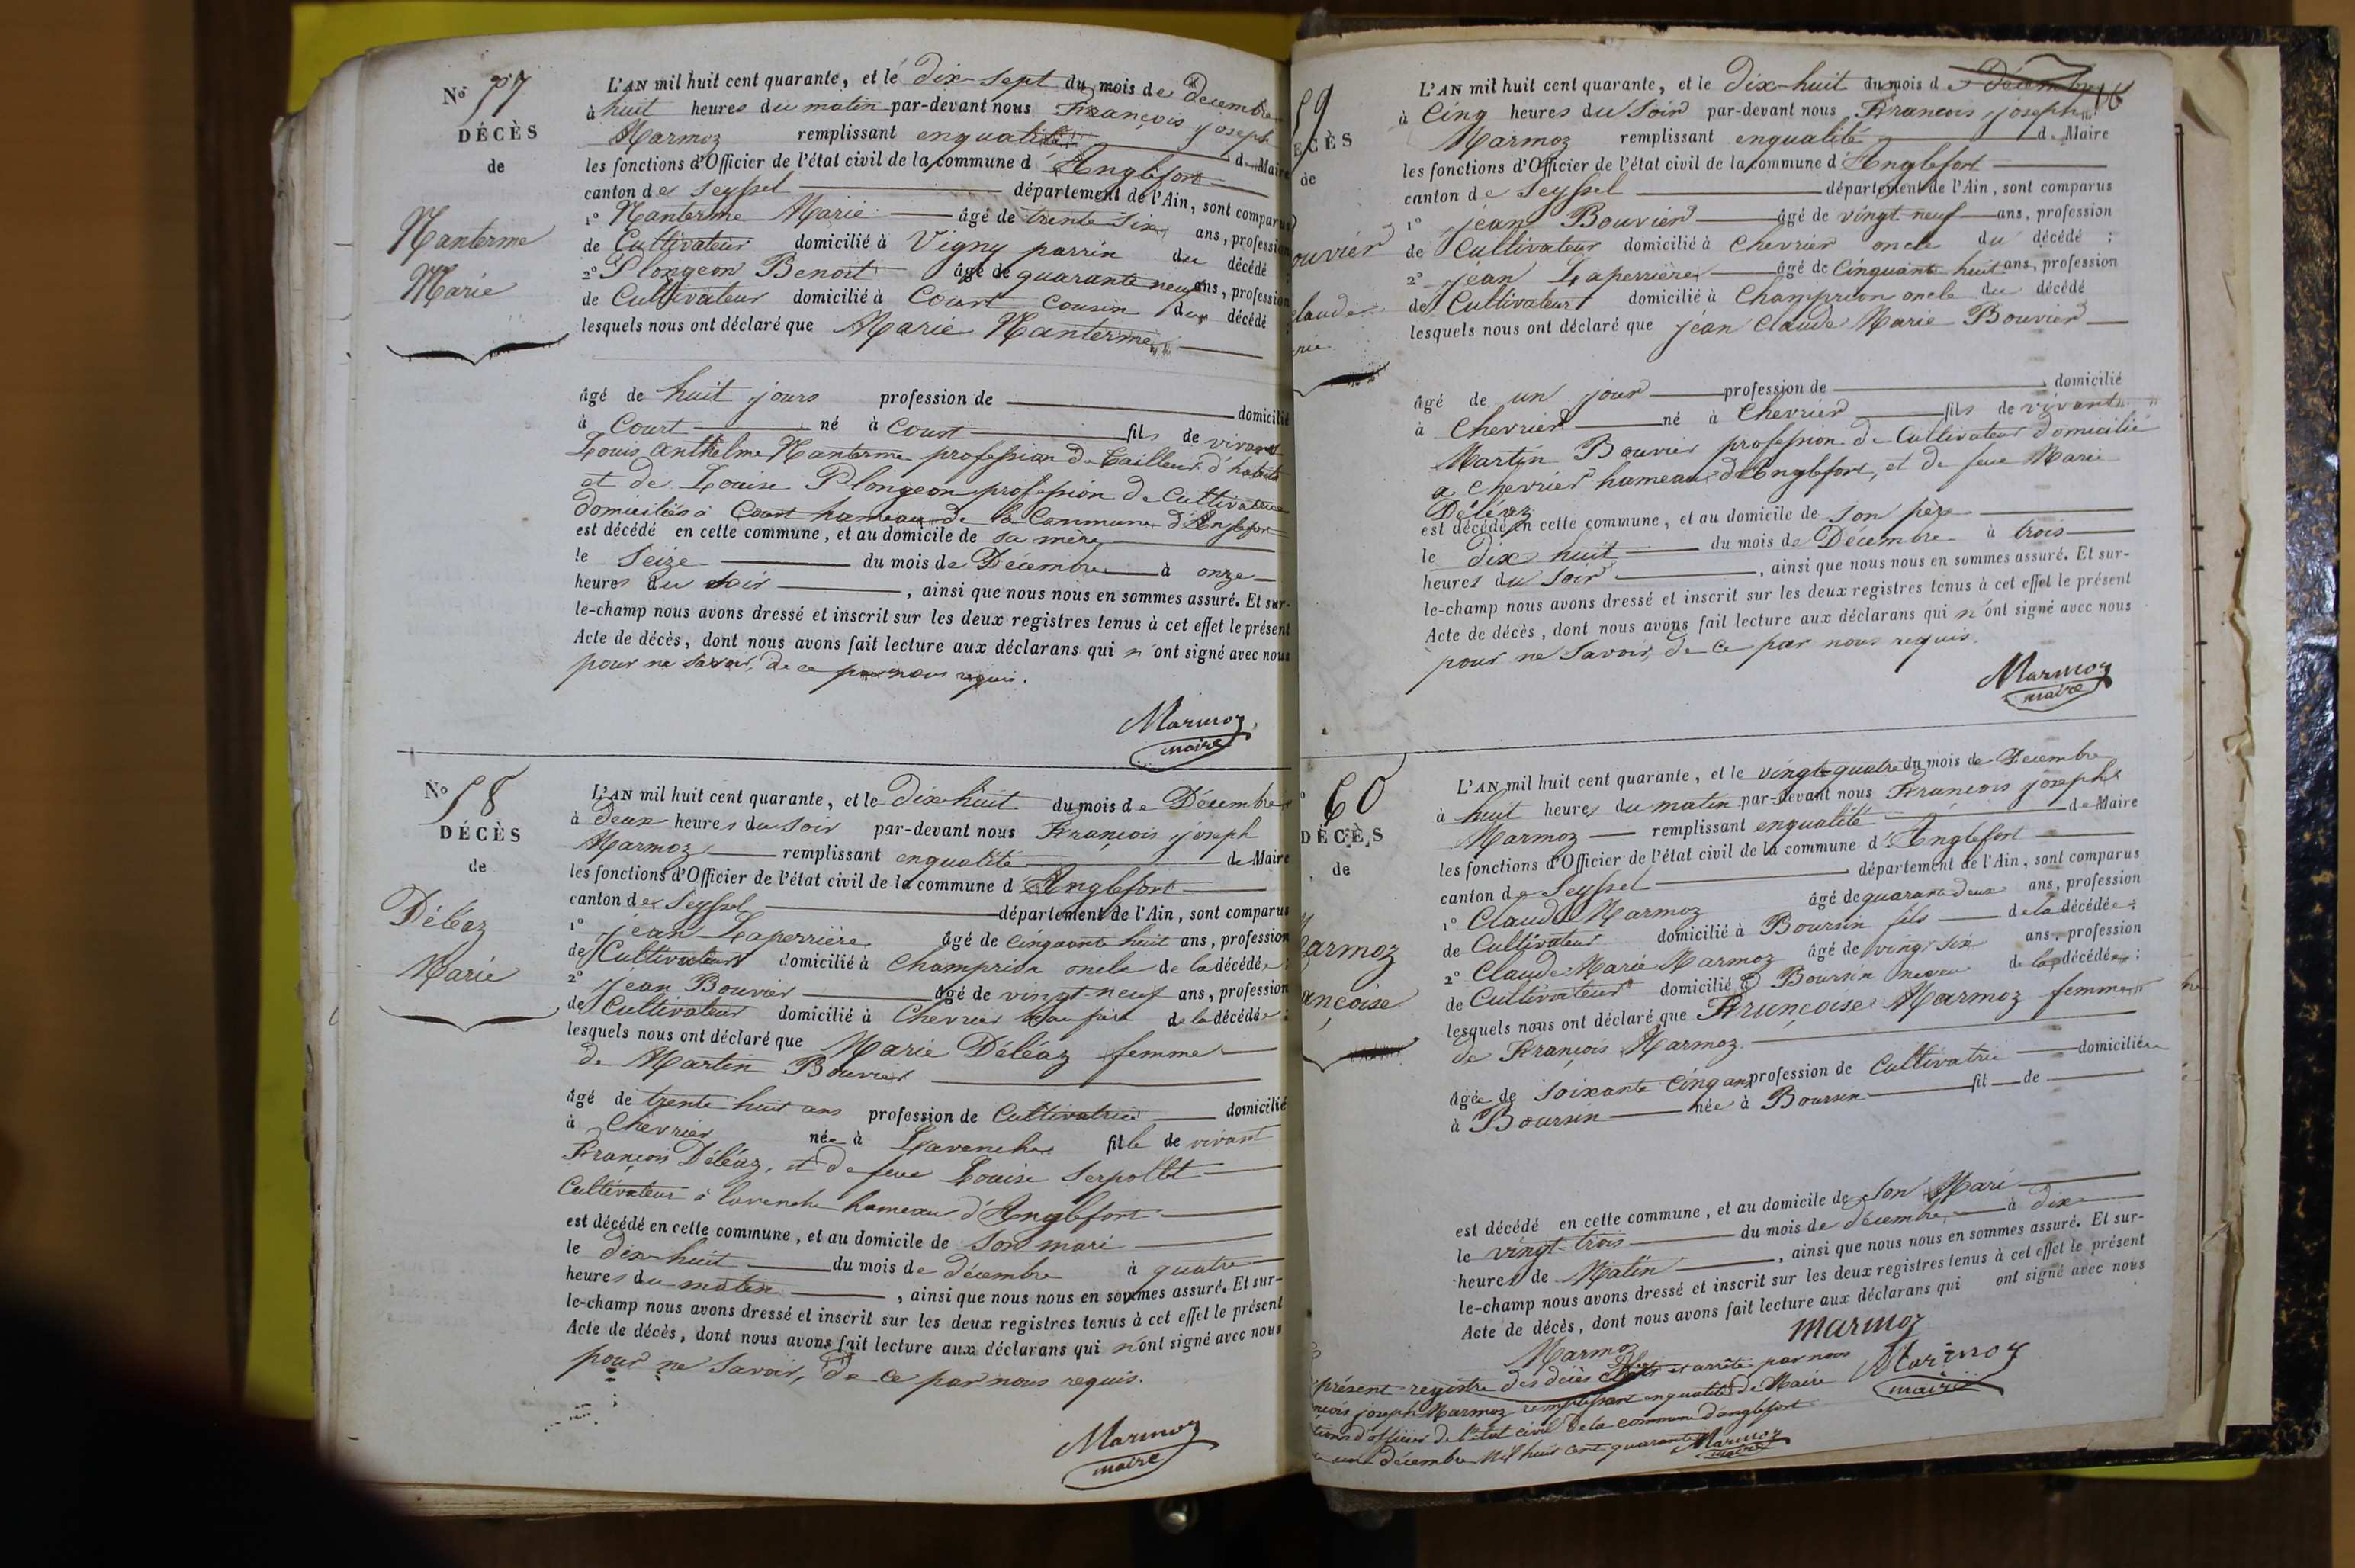 No 57
DÉCÈS
de
Nanterme
Marie
L'AN mil huit cent quarante, et le dix-sept du mois de Décembre
à huit heures du matin par-devant nous François joseph
Marmoz remplissant enqualité de Maire
les fonctions d'Officier de l'état civil de la commune d'Anglefort
canton de Seyssel département de l'Ain, sont comparus
1° Nanterme Marie âgé de trente six ans, profession
de Cultivateur domicilié à Vigny parrin du décédé
2° Plongeon Benoit âgé de quarante neuf ans, profession
de Cultivateur domicilié à Court Cousin du décédé
lesquels nous ont déclaré que Marie Nanterme
âgé de huit jours profession de domicilié
à Court né à Court fils de vivant
Louis Anthelme Nanterme profession de tailleur d'habits
et de Louise Plongeon profession de Cultivatrice
domiciliés à Court hameau de la Commune d'Anglefort
est décédé en cette commune, et au domicile de sa mère
le Seize du mois de Décembre à onze
heures du soir, ainsi que nous nous en sommes assuré. Et sur-
le-champ nous avons dressé et inscrit sur les deux registres tenus à cet effet le présent
Acte de décès, dont nous avons fait lecture aux déclarans qui n'ont signé avec nous
pour ne savoir, de ce par nous requis.
Marmoz
maire
No 58
DÉCÈS
de
Déléaz
Marie
L'AN mil huit cent quarante, et le dix-huit du mois de Décembre
à deux heures du soir par-devant nous François joseph
Marmoz remplissant enqualité de Maire
les fonctions d'Officier de l'état civil de la commune d'Anglefort
canton de Seyssel département de l'Ain, sont comparus
1° jean Laperrière âgé de cinquante huit ans, profession
de Cultivateur domicilié à Champrion oncle de la décédée
2° jean Bouvier âgé de vingt-neuf ans, profession
de Cultivateur domicilié à Chevrier de la décédée
lesquels nous ont déclaré que Marie Déléaz femme
de Martin Bouvier
âgé de trente huit ans profession de Cultivatrice domicilié
à Chevrier née à Lavenche fille de vivant
François Déléaz, et de feue Louise Serpollet
Cultivateur à lavenche hameau d'Anglefort
est décédé en cette commune, et au domicile de Son mari
le dix-huit du mois de décembre à quatre
heures du matin, ainsi que nous nous en sommes assuré. Et sur-
le-champ nous avons dressé et inscrit sur les deux registres tenus à cet effet le présent
Acte de décès, dont nous avons fait lecture aux déclarans qui n'ont signé avec nous
pour ne Savoir, de ce par nous requis.
Marmoz
maire
16
59
ÉCÈS
de
ouvier
claude
rie
L'AN mil huit cent quarante, et le dix-huit du mois de Décembre
à Cinq heures du Soir par-devant nous François joseph
Marmoz remplissant enqualité de Maire
les fonctions d'Officier de l'état civil de la commune d'Anglefort
canton de Seyssel département de l'Ain, sont comparus
1° jean Bouvier âgé de vingt-neuf ans, profession
de Cultivateur domicilié à Chevrier oncle du décédé ;
2° jean Laperrière âgé de Cinquante huit ans, profession
de Cultivateur domicilié à Champrion oncle du décédé
lesquels nous ont déclaré que jean Claude Marie Bouvier
âgé de un jour profession de domicilié
à Chevrier né à Chevrier fils de vivant
Martin Bouvier profession de Cultivateur domicilié
a Chevrier hameau d'Anglefort, et de feue Marie
Déléaz
est décédé en cette commune, et au domicile de son père
le dix huit du mois de Décembre à trois
heures du Soir, ainsi que nous nous en sommes assuré. Et sur-
le-champ nous avons dressé et inscrit sur les deux registres tenus à cet effet le présent
Acte de décès, dont nous avons fait lecture aux déclarans qui n'ont signé avec nous
pour ne Savoir, de ce par nous requis.
Marmoz
maire
60
DÉCÈS
de
armoz
ançoise
L'AN mil huit cent quarante, et le vingt-quatre du mois de Décembre
à huit heures du matin par-devant nous François joseph
Marmoz remplissant enqualité de Maire
les fonctions d'Officier de l'état civil de la commune d'Anglefort
canton de Seyssel département de l'Ain, sont comparus
1° Claude Marmoz âgé de quarante deux ans, profession
de Cultivateur domicilié à Boursin fils de la décédée ;
2° Claude Marie Marmoz âgé de vingt six ans, profession
de Cultivateur domicilié à Boursin neveu de la décédée ;
lesquels nous ont déclaré que Françoise Marmoz femme
de François Marmoz
âgée de Soixante Cinq ans profession de Cultivatrice domiciliée
à Boursin née à Boursin fil de
est décédé en cette commune, et au domicile de Son Mari
le vingt-trois du mois de décembre à dix
heures de Matin, ainsi que nous nous en sommes assuré. Et sur-
le-champ nous avons dressé et inscrit sur les deux registres tenus à cet effet le présent
Acte de décès, dont nous avons fait lecture aux déclarans qui ont signé avec nous
Marmoz marmoz
Marmoz
maire
présent registre des décès Clos et arrêté par nous
nçois joseph Marmoz remplissant enqualité de Maire
tions d'officier de l'état civil de la commune d'anglefort
décembre Mil huit cent quarante
Marmoz
maire